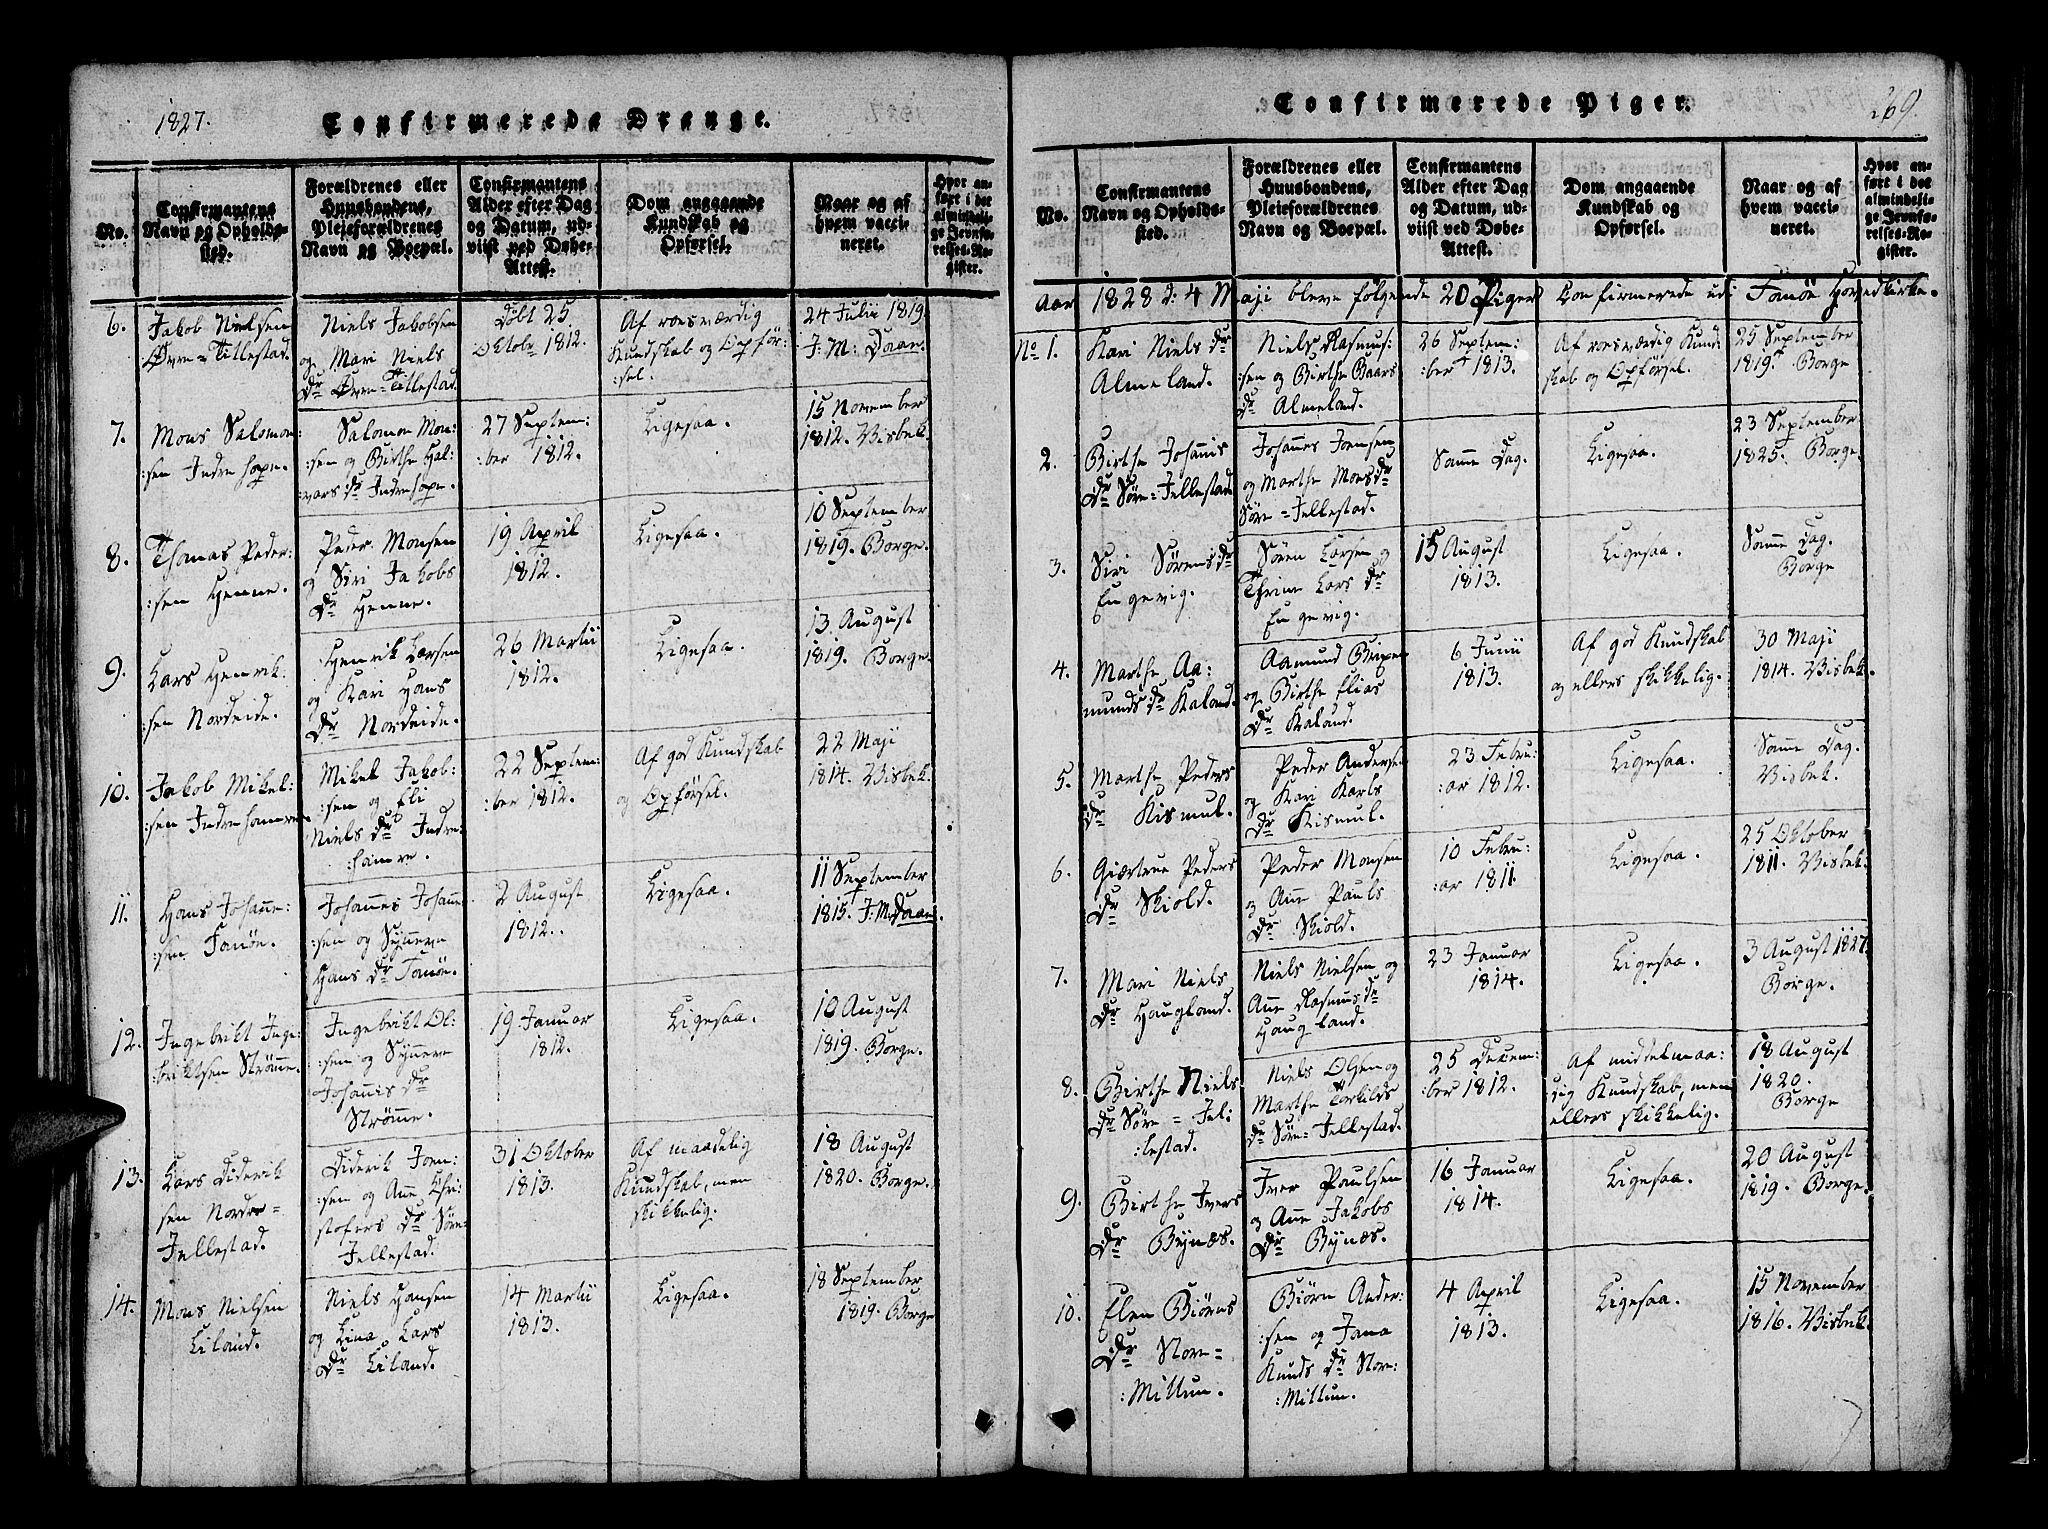 1827.
Confirmerede Drenge.
No.
Confirmantens
Navn og Opholds-
sted.
Forældrenes eller
Huusbondens,
Plejeforældrenes
Navn og Boepæl.
Confirmantens
Alder efter Dag
og Datum, ud-
viist ved Døbe-
Attest.
Dom angaaende
Kundskab og
Opførsel.
Naar og af
hvem vacci-
neret.
Hvor an-
ført i det
almindeli-
ge Jevnfø-
relses-Re-
gister.
6.
Jakob Nielsen
Øvre=Tillestad.
Niels Jakobsen
og Mari Niels
Dr Øvre=Tillestad.
Døbt 25
Oktobr 1812.
Af roesværdig
Kundskab og Opfør:
:sel.
24 Julii 1819.
J: M: Daan.
7.
Mons Salomon:
:sen Indrehope.
Salomon Mon:
:sen og Birthe Hal:
vors Dr Indrehope.
27 Septem:
:ber 1812.
Ligesaa.
15 November
1812. Visbek.
8.
Thomas Peder:
:sen Henne.
Peder Monsen
og Siri Jakobs
Dr Henne.
19 April
1812.
Ligesaa.
10 September
1819. Borge.
9.
Lars Henrik:
:sen Nordeide.
Henrik Larsen
og Kari Hans
Dr Nordeide.
26 Martii
1812.
Ligesaa.
13 August
1819. Borge.
10.
Jakob Mikel:
:sen Indrehamre.
Mikel Jakob:
:sen og Eli
Niels Dr Indre:
:hamre.
22 Septem:
:ber 1812.
Af god Kundskab
og Opførsel.
22 Maji
1814. Visbek.
11.
Hans Johanne:
:sen Fanøe.
Johannes Johanne
:sen og Synneve
Hans Dr Fanøe.
2 August
1812.
Ligesaa.
11 September
1815. J: M: Daan.
12.
Ingebrikt Inge:
:briktsen Strømme.
Ingebrikt Ol:
:sen og Synneve
Johannis Dr
Strømme.
19 Januar
1812.
Ligesaa.
10 August
1819. Borge.
13.
Lars Diderik
sen Nordre=
Jellestad.
Diderik Joen:
:sen og Anne Chri:
stofers Dr Søre=
Jellestad.
31 Oktober
1813.
Af maadelig
Kundskab, men
skikkelig.
18 August
1820. Borge.
14.
Mons Nielsen
Liland.
Niels Hansen
og Lina Lars
Dr Liland.
14 Martii
1813.
Ligesaa.
18 September
1819. Borge
Confirmerede Piger.
269.
No.
Confirmantens
Navn og Opholds-
sted.
Forældrenes eller
Huusbondens,
Plejeforældrenes
Navn og Boepæl.
Confirmantens
Alder efter Dag
og Datum, ud-
viist ved Døbe-
Attest.
Dom angaaende
Kundskab og
Opførsel.
Naar og af
hvem vacci-
neret.
Hvor an-
ført i det
almindeli-
ge Jevnfø-
relses-Re-
gister.
Aar 1828 d: 4 Maji bleve følgende 20 Piger Confirmerede udi Fanøe Hovedkirke.
No 1.
Kari Niels Dr
Almeland.
Niels Rasmus:
:sen og Birthe Baars
Dr Almeland.
26 Septem:
:ber 1813.
Af roesværdig Kund
skab og Opførsel.
25 September
1819. Borge
2.
Birthe Johannis
Dr Søre=Jellestad
Johannes Joensen
og Marthe Mons Dr
Søre=Jellestad.
Samme Dag.
Ligesaa.
23 September
1825. Borge.
3.
Siri Sørens Dr
Engevig.
Søren Larsen og
Thrine Lars Dr
Engevig.
15 August
1813.
Ligesaa.
Samme Dag.
Borge
4.
Marthe Aa:
munds Dr Kaland.
Aamund
og Birthe Elias
Dr Kaland.
6 Junii
1813.
Af god Kundskab
og ellers skikkelig.
30 Maji
1814. Visbek.
5.
Marthe Peders
Dr Kismul.
Peder Anderse
og Kari Karls
Dr Kismul.
23 Febru:
:ar 1812.
Ligesaa.
Samme Dag.
Visbek.
6.
Giærtrue Peders
Dr Skiold.
Peder Monsen
og Anne Pauls
Dr Skiold.
10 Febru:
:ar 1811.
Ligesaa.
25 Oktober
1811. Visbek.
7.
Mari Niels
Dr Haugland.
Niels Nielsen og
Anne Rasmus Dr
Haugland.
23 Januar
1814.
Ligesaa.
3 August 1827.
Borge.
8.
Birthe Niels
Dr Søre=Jel:
:lestad.
Niels Olsen og
Marthe Torkilds
Dr Søre=Jellestad.
25 Decem:
:ber 1812.
Af middelmaa:
dig Kundskab, men
ellers skikkelig.
18 August
1820.
Borge
9.
Birthe Ivers
Dr Bynæs.
Iver Paulsen
og Anne Jakobs
Dr Bynæs.
16 Januar
1814.
Ligesaa.
20 August
1819. Borge.
10.
Elen Biørns
Dr Nore=
:Millun.
Biørn Ander:
:sen og Jana
Knuds Dr Nore:
:Millun.
4 April
1813.
Ligesaa.
15 November
1816. Visbek.